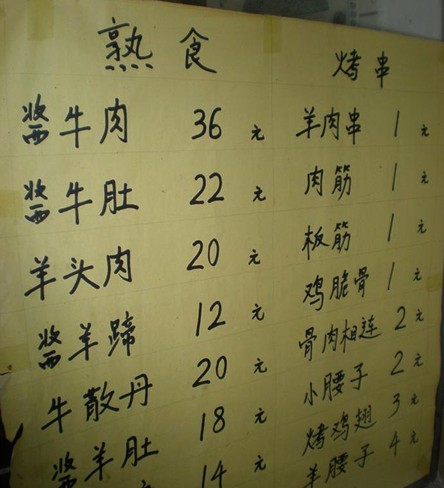 熟食
酱牛肉 36 元
酱牛肚 22 元
羊头肉 20 元
酱羊蹄 12 元
牛散丹 20 元
酱羊肚 18 元
14 元
烤串
羊肉串 1 元
肉筋 1 元
板筋 1 元
鸡脆骨 1 元
骨肉相连 2 元
小腰子 2 元
烤鸡翅 3 元
羊腰子 4 元